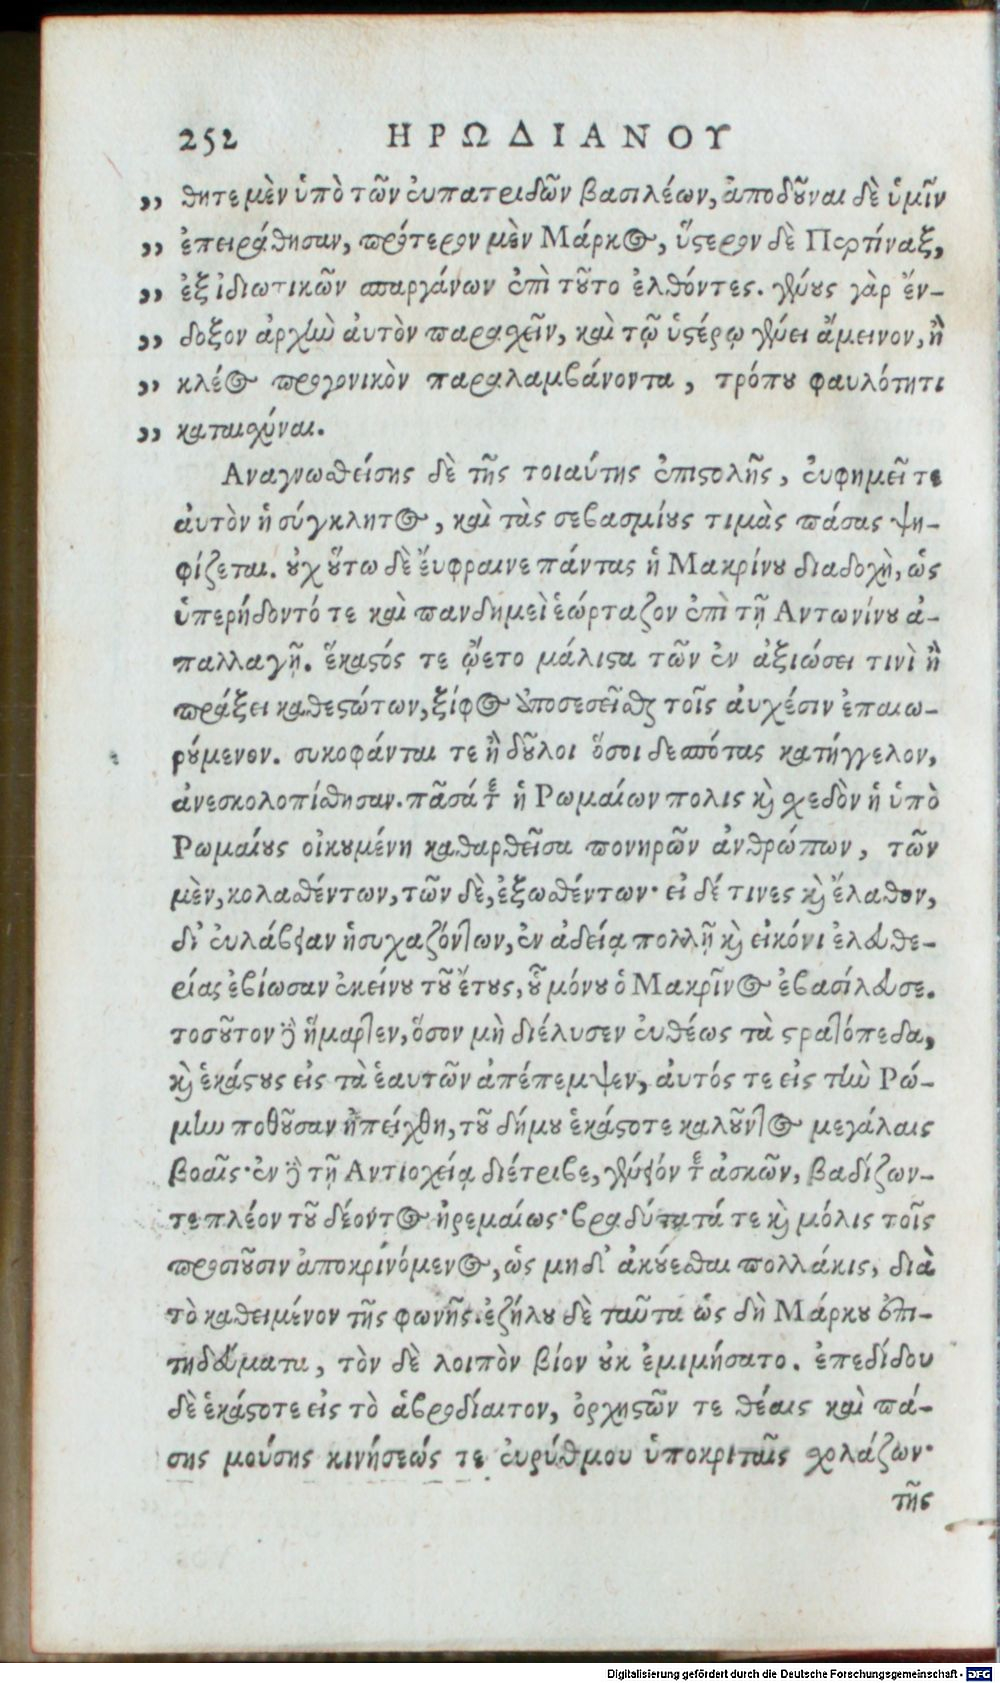 252 ΗΡΩΔΙΑΝΟΥ
„ θητε μὲν ὑπὸ τῶν εὐπατριδῶν βασιλέων, ἀποδοῦναι δὲ ὑμῖν
„ ἐπειράθησαν, πρότερον μὲν Μάρκος, ὕστερον δὲ Περτίναξ,
„ ἐξ ἰδιωτικῶν σπαργάνων ἐπὶ τοῦτο ἐλθόντες. γένους γὰρ ἔν-
„ δοξον ἀρχὴν αὐτὸν παραχεῖν, καὶ τῷ ὑστέρῳ γένει ἄμεινον, ἢ
„ κλέος προγονικὸν παραλαμβάνοντα, τρόπου φαυλότητι
„ καταισχύναι.
Αναγνωσθείσης δὲ τῆς τοιαύτης ἐπιστολῆς, εὐφημεῖ τε
αὐτὸν ἡ σύγκλητος, καὶ τὰς σεβασμίους τιμὰς πάσας ψη-
φίζεται. οὐχ οὕτω δὲ εὔφραινε πάντας ἡ Μακρίνου διαδοχὴ, ὡς
ὑπερήδοντό τε καὶ πανδημεὶ ἑώρταζον ἐπὶ τῇ Αντωνίνου ἀ-
παλλαγῇ. ἕκαστός τε ᾤετο μάλιστα τῶν ἐν ἀξιώσει τινὶ ἢ
πράξει καθεστώτων, ξίφος ἀποσεσεῖσθαι τοῖς αὐχέσιν ἐπαιω-
ρούμενον. συκοφάνται τε ἢ δοῦλοι ὅσοι δεσπότας κατήγγελον,
ἀνεσκολοπίσθησαν. πᾶσά τε ἡ Ρωμαίων πολις καὶ σχεδὸν ἡ ὑπὸ
Ρωμαίους οἰκουμένη καθαρθεῖσα πονηρῶν ἀνθρώπων, τῶν
μὲν, κολασθέντων, τῶν δὲ, ἐξωσθέντων· εἰ δέ τινες καὶ ἔλαθον,
δι' εὐλάβειαν ἡσυχαζόντων, ἐν ἀδείᾳ πολλῇ καὶ εἰκόνι ἐλευθε-
ρίας ἐβίωσαν ἐκείνου τοῦ ἔτους, οὗ μόνου ὁ Μακρῖνος ἐβασίλευσε.
τοσοῦτον δὲ ἥμαρτεν, ὅσον μὴ διέλυσεν εὐθέως τὰ στρατόπεδα,
καὶ ἑκάστους εἰς τὰ ἑαυτῶν ἀπέπεμψεν, αὐτός τε εἰς τὴν Ρώ-
μην ποθοῦσαν ἠπείχθη, τοῦ δήμου ἑκάστοτε καλοῦντος μεγάλαις
βοαῖς· ἐν δὲ τῇ Αντιοχείᾳ διέτριβε, γένειόν τε ἀσκῶν, βαδίζων-
τε πλέον τοῦ δέοντος ἠρεμαίως· βραδύτατά τε καὶ μόλις τοῖς
προσιοῦσιν ἀποκρινόμενος, ὡς μηδ' ἀκούεσθαι πολλάκις, διὰ
τὸ καθειμένον τῆς φωνῆς. ἐζήλου δὲ ταῦτα ὡς δὴ Μάρκου ἐπι-
τηδεύματα, τὸν δὲ λοιπὸν βίον οὐκ ἐμιμήσατο. ἐπεδίδου
δὲ ἑκάστοτε εἰς τὸ ἁβροδίαιτον, ὀρχηστῶν τε θέαις καὶ πά-
σης μούσης κινήσεώς τε εὐρύθμου ὑποκριταῖς σχολάζων·
τῆς
Digitalisierung gefördert durch die Deutsche Forschungsgemeinschaft - DFG